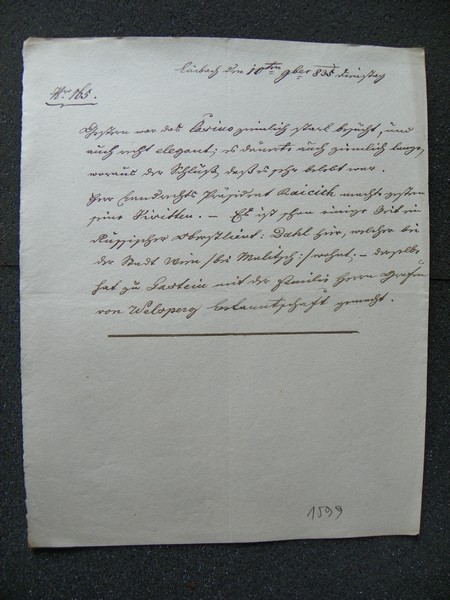 Laibach den 10ten 9ber 835 Dienstag
No. 165.
Gestern war das Casino ziemlich stark besucht, und
auch recht elegant; es dauerte auch ziemlich lange,
woraus der Schluß, daß es sehr belebt war.
Herr Landrechts Präsident Raicich machte gestern
seine Visitten. – Es ist schon einige Zeit ein
Russischer Oberstlieut: Dahl hier, welcher bei
der Stadt Wien /: bei Malitsch :/ wohnt; – derselbe
hat zu Gastein mit der Familie Herrn Grafen
von Welsperg bekanntschaft gemacht.
1599